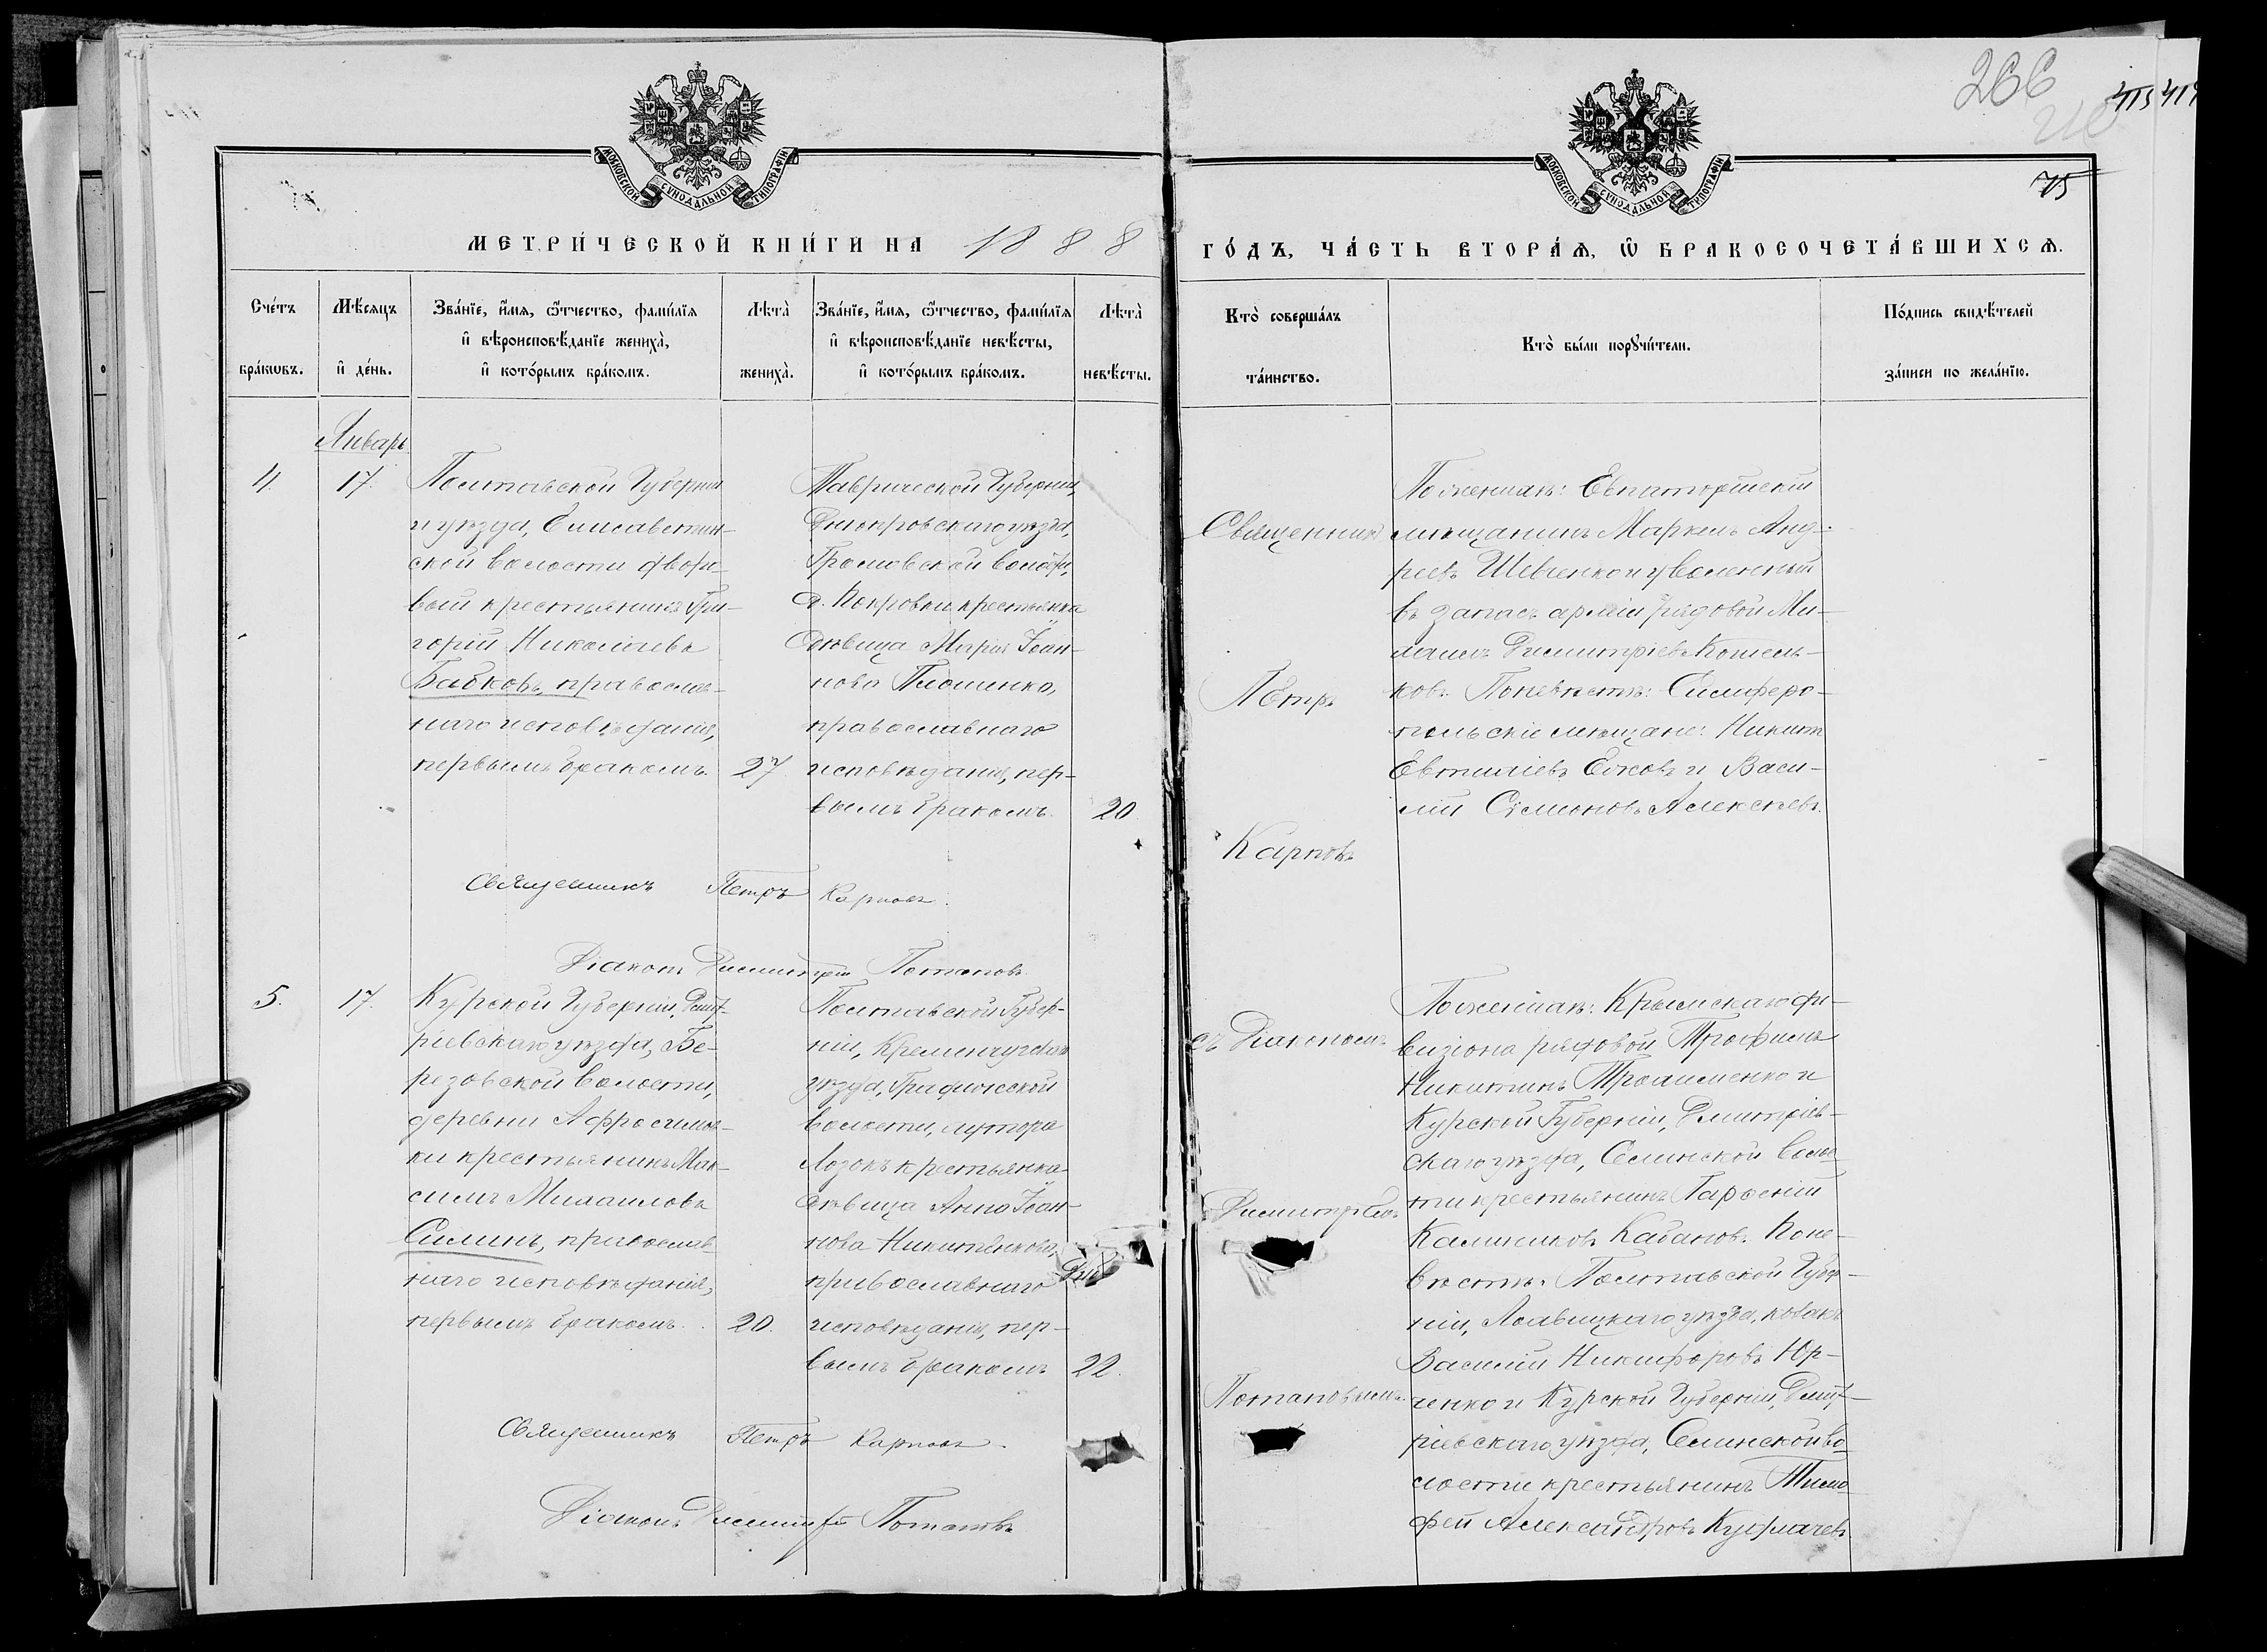 266
413 414
75
МОСКОВСКОЙ СѴНОДАЛЬНОЙ ТИПОГРАФІИ
МОСКОВСКОЙ СѴНОДАЛЬНОЙ ТИПОГРАФІИ
МЕТРИ́ЧЕСКОЙ КНИ́ГИ НА 1888
ГО́ДЪ, ЧА́СТЬ ВТОРА́Ѧ, Ѿ БРАКОСОЧЕТА́ВШИХСѦ.
Сче́тъ
бра́кѡвъ.
Мѣ́сѧцъ
и҆ де́нь.
Зва́нїе, и҆́мѧ, ѻ҆́тчество, фамѝлїѧ
и҆ вѣроисповѣ́данїе жениха̀,
и҆ кото́рымъ бра́комъ.
Лѣта̀
жениха̀.
Зва́нїе, и҆́мѧ, ѻ҆́тчество, фамѝлїѧ
и҆ вѣроисповѣ́данїе невѣ́сты,
и҆ кото́рымъ бра́комъ.
Лѣта̀
невѣ́сты.
Кто̀ соверша́лъ
та́инство.
Кто̀ бы́ли порꙋчи́тели.
По́дпись свидѣ́телей
за́писи по жела́нїю.
Январь
4.
17.
Полтавской Губерніи
и уѣзда, Елисаветин-
ской волости дворо-
вый крестьянинъ Гри-
горій Николаевъ
Бабковъ, православ-
наго исповѣданія,
первымъ бракомъ.
27.
Таврической Губерніи,
Днѣпровскаго уѣзда,
Громовской волости,
с. Покровки крестьянка
дѣвица Марія Іоан-
нова Плошенко,
православнаго
исповѣданія, пер-
вымъ бракомъ.
20.
Священникъ Петръ Карповъ.
Діаконъ Димитрій Потаповъ.
Священникъ
Петръ
Карповъ
По женихѣ: Евпаторійскій
мѣщанинъ Маркелъ Анд-
реевъ Шевченко и уволенный
въ запасъ арміи рядовой Ми-
хаилъ Димитріевъ Котель-
ковъ. По невѣстѣ: Симферо-
польскіе мѣщане: Никита
Евтихіевъ Ежовъ и Васи-
лій Симеоновъ Алексѣевъ.
5.
17.
Курской Губерніи, Дмит-
ріевскаго уѣзда, Бе-
резовской волости,
деревни Афросимов-
ки крестьянинъ Мак-
симъ Михаиловъ
Силинъ, православ-
наго исповѣданія,
первымъ бракомъ.
20.
Полтавской Губер-
ніи, Кременчугскаго
уѣзда,
волости, хутора
Лозокъ крестьянка
дѣвица Анна Іоан-
нова Никитенкова,
православнаго
исповѣданія, пер-
вымъ бракомъ
22.
Священникъ Петръ Карповъ.
Діаконъ Димитрій Потаповъ
съ Діакономъ
Димитріемъ
Потаповымъ.
По женихѣ: Крымскаго ди-
визіона рядовой Трофимъ
Никитинъ Трохименко и
Курской Губерніи, Дмитріев-
скаго уѣзда, Селинской волос-
ти крестьянинъ
Калинниковъ Кабановъ. По не-
вѣстѣ: Полтавской Губер-
ніи, уѣзда, козакъ
Василій Никифоровъ Юр-
ченко и Курской Губерніи, Дмит-
ріевскаго уѣзда, Селинской во-
лости крестьянинъ Тимо-
фей Александровъ